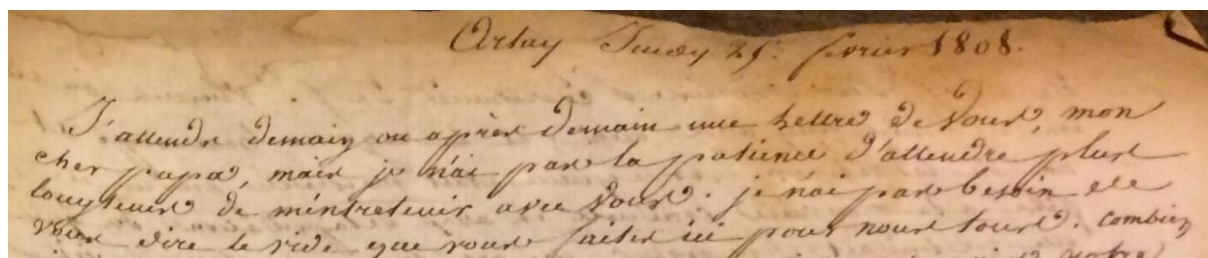 Arlay Jeudy 25. fevrier 1808.
J'attends demain ou après demain une lettre de vous, mon
cher papa, mais je n'ai pas la patience d'attendre plus
longtems de m'entretenir avec vous. je n'ai pas besoin de
vous dire le vide que vous faites ici pour nous tous. combien
votre